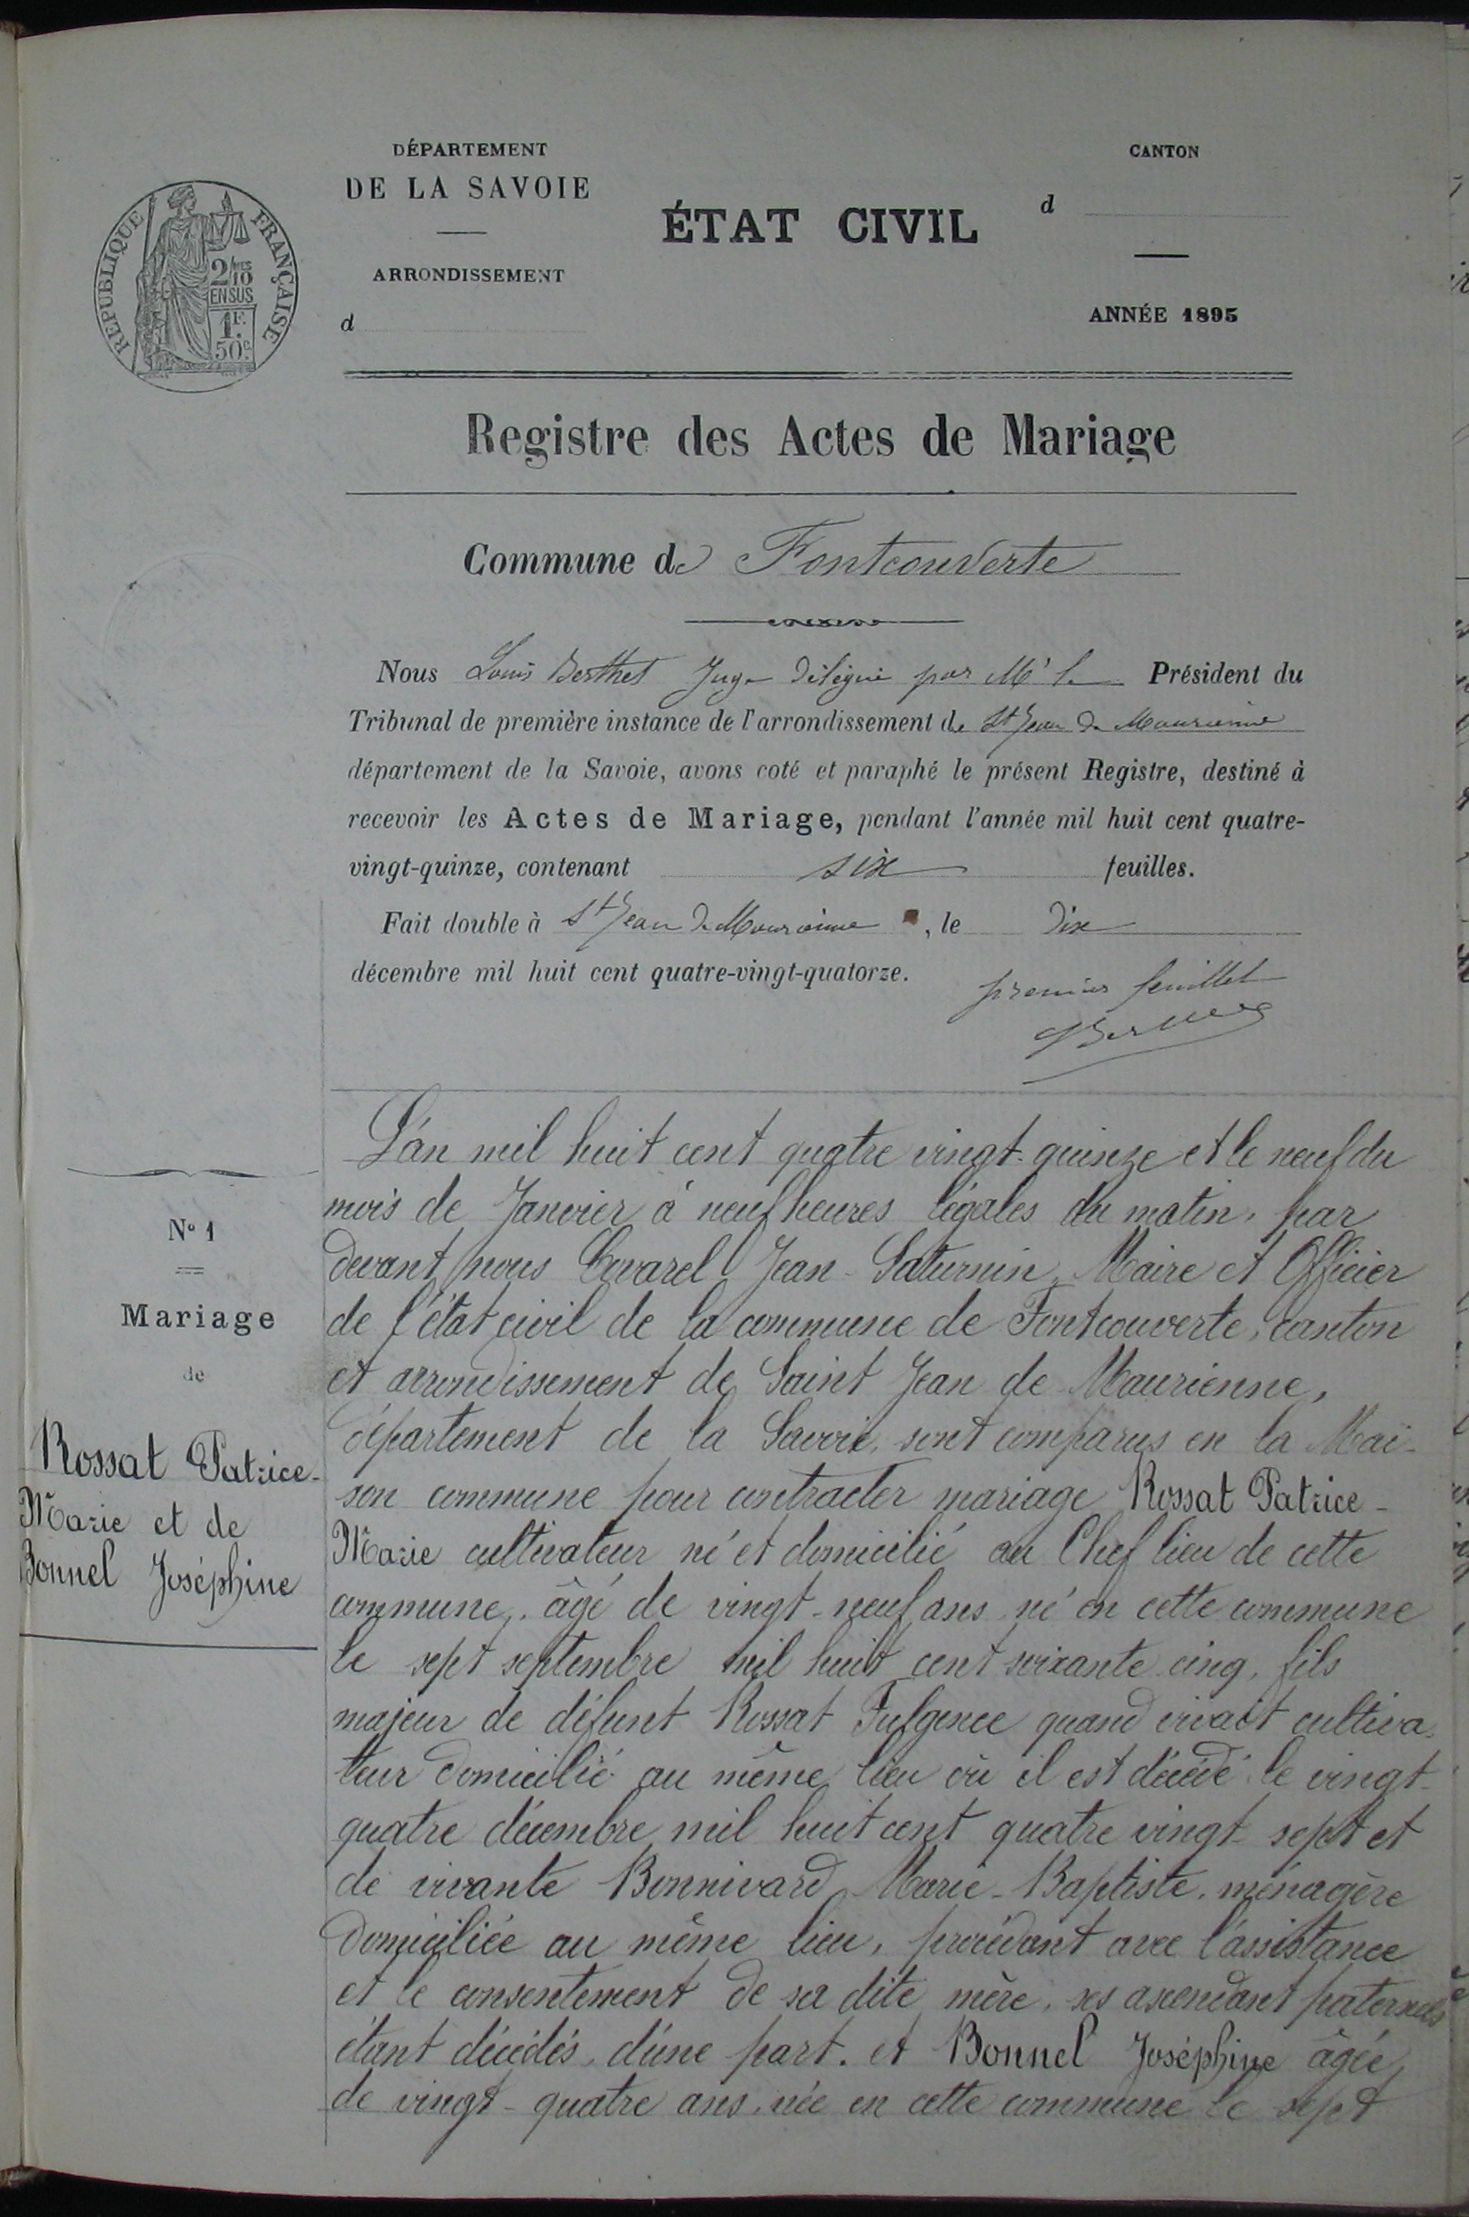 DÉPARTEMENT
DE LA SAVOIE
ARRONDISSEMENT
d
ÉTAT CIVIL
CANTON
d
ANNÉE 1895
REPUBLIQUE FRANÇAISE
2/10 MES
EN SUS
1F.
50c.
Registre des Actes de Mariage
Commune de Fontcouverte
Nous Louis Berthet Juge délégué par Mr le Président du
Tribunal de première instance de l'arrondissement de St Jean de Maurienne
département de la Savoie, avons coté et paraphé le présent Registre, destiné à
recevoir les Actes de Mariage, pendant l'année mil huit cent quatre-
vingt-quinze, contenant six feuilles.
Fait double à St Jean de Maurienne, le dix
décembre mil huit cent quatre-vingt-quatorze.
premier feuillet
Berthet
N° 1
Mariage
de
Rossat Patrice-
Marie et de
Bonnel Joséphine
L'an mil huit cent quatre vingt-quinze et le neuf du
mois de Janvier à neuf heures légales du matin, par
devant nous Covarel Jean-Saturnin, Maire et Officier
de l'état civil de la commune de Fontcouverte, canton
et arrondissement de Saint Jean de Maurienne,
département de la Savoie, sont comparus en la Mai-
son commune pour contracter mariage Rossat Patrice-
Marie cultivateur né et domicilié au Chef lieu de cette
commune, âgé de vingt-neuf ans né en cette commune
le sept septembre mil huit cent soixante cinq, fils
majeur de défunt Rossat Fulgence quand vivait cultiva-
teur domicilié au même lieu où il est décédé le vingt-
quatre décembre mil huit cent quatre vingt sept et
de vivante Bonnivard Marie-Baptiste, ménagère
domiciliée au même lieu, procédant avec l'assistance
et le consentement de sa dite mère, ses ascendant paternels
étant décédés, d'une part. et Bonnel Joséphine âgée
de vingt-quatre ans, née en cette commune le sept